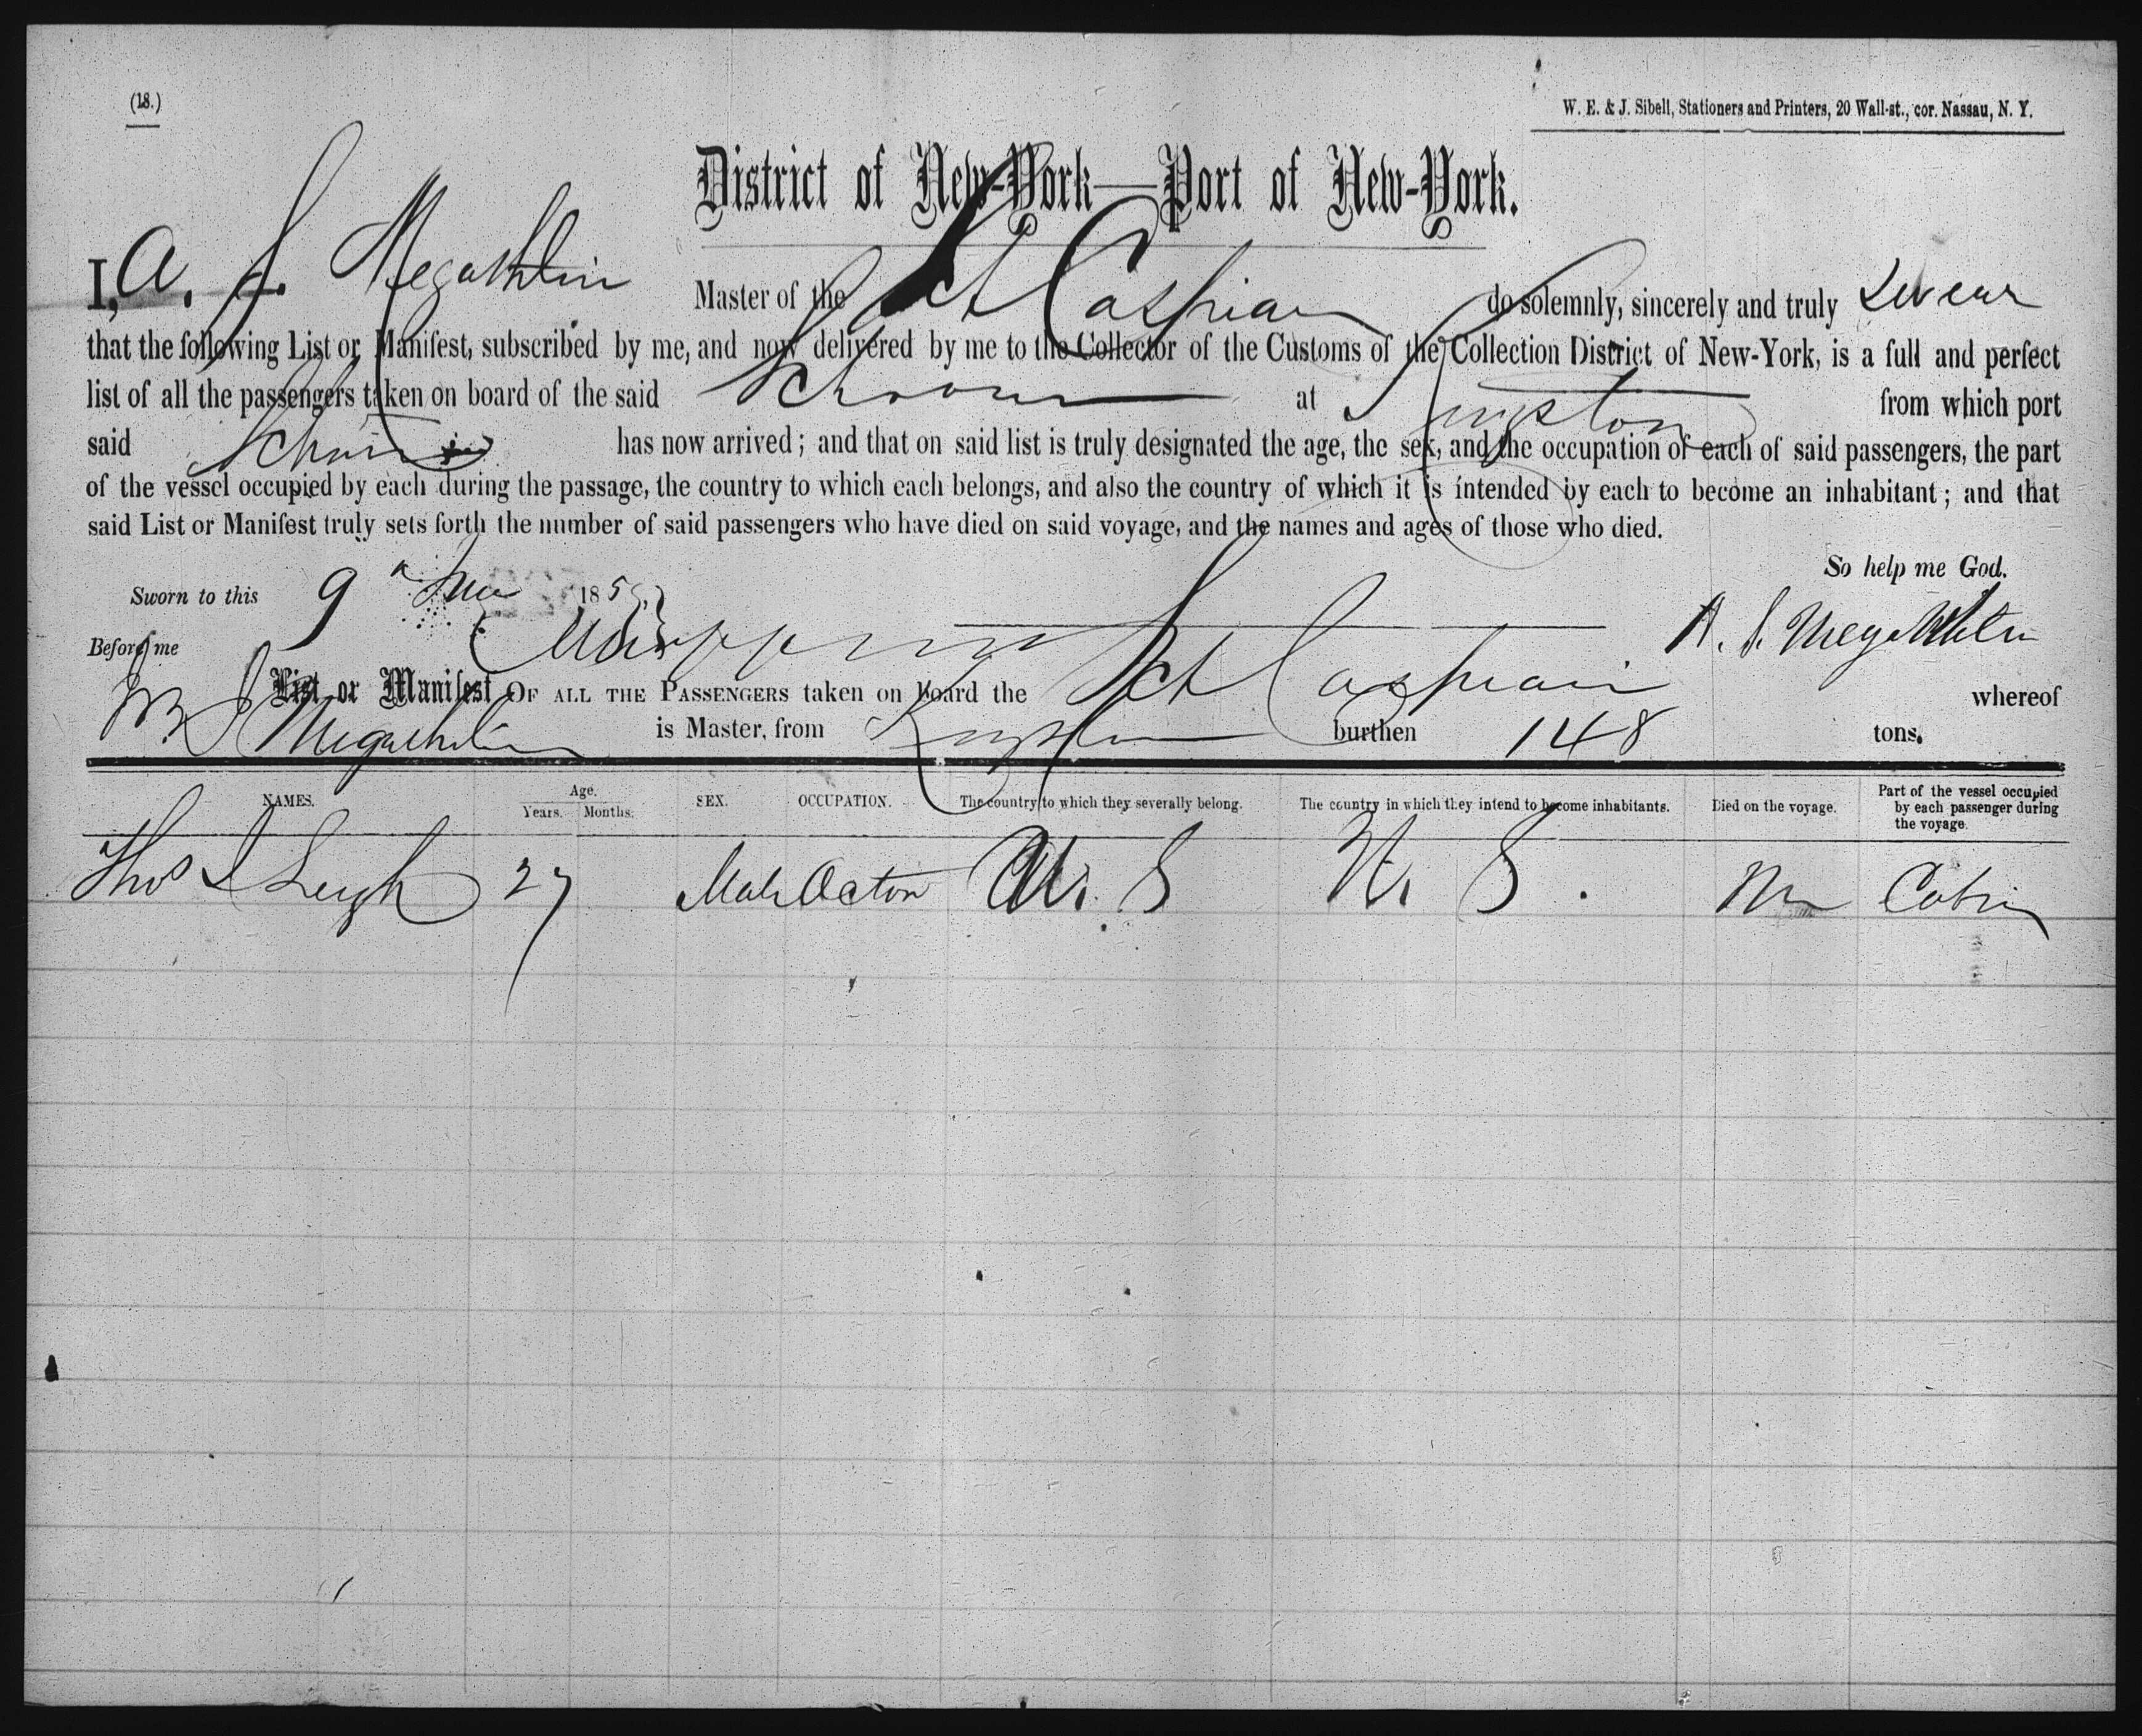 (18.)
W. E. & J. Sibell, Stationers and Printers, 20 Wall-st., cor. Nassau, N. Y.
District of New-York—Port of New-York.
I, A. S. Megathlin Master of the Sch Caspian do solemnly, sincerely and truly Swear
that the following List or Manifest, subscribed by me, and now delivered by me to the Collector of the Customs of the Collection District of New-York, is a full and perfect
list of all the passengers taken on board of the said Schooner at Kingston from which port
said Schooner has now arrived; and that on said list is truly designated the age, the sex, and the occupation of each of said passengers, the part
of the vessel occupied by each during the passage, the country to which each belongs, and also the country of which it is intended by each to become an inhabitant; and that
said List or Manifest truly sets forth the number of said passengers who have died on said voyage, and the names and ages of those who died.
So help me God.
Sworn to this 9 June 185
Before me A. S. Megathlin
List or Manifest OF ALL THE PASSENGERS taken on board the Sch Caspian whereof
Megathlin is Master, from Kingston burthen 148 tons.
NAMES. Age. Years. Months. SEX. OCCUPATION. The country to which they severally belong. The country in which they intend to become inhabitants. Died on the voyage. Part of the vessel occupied by each passenger during the voyage.
Thos S Leigh 27 Male Acton U. S U. S. No Cabin